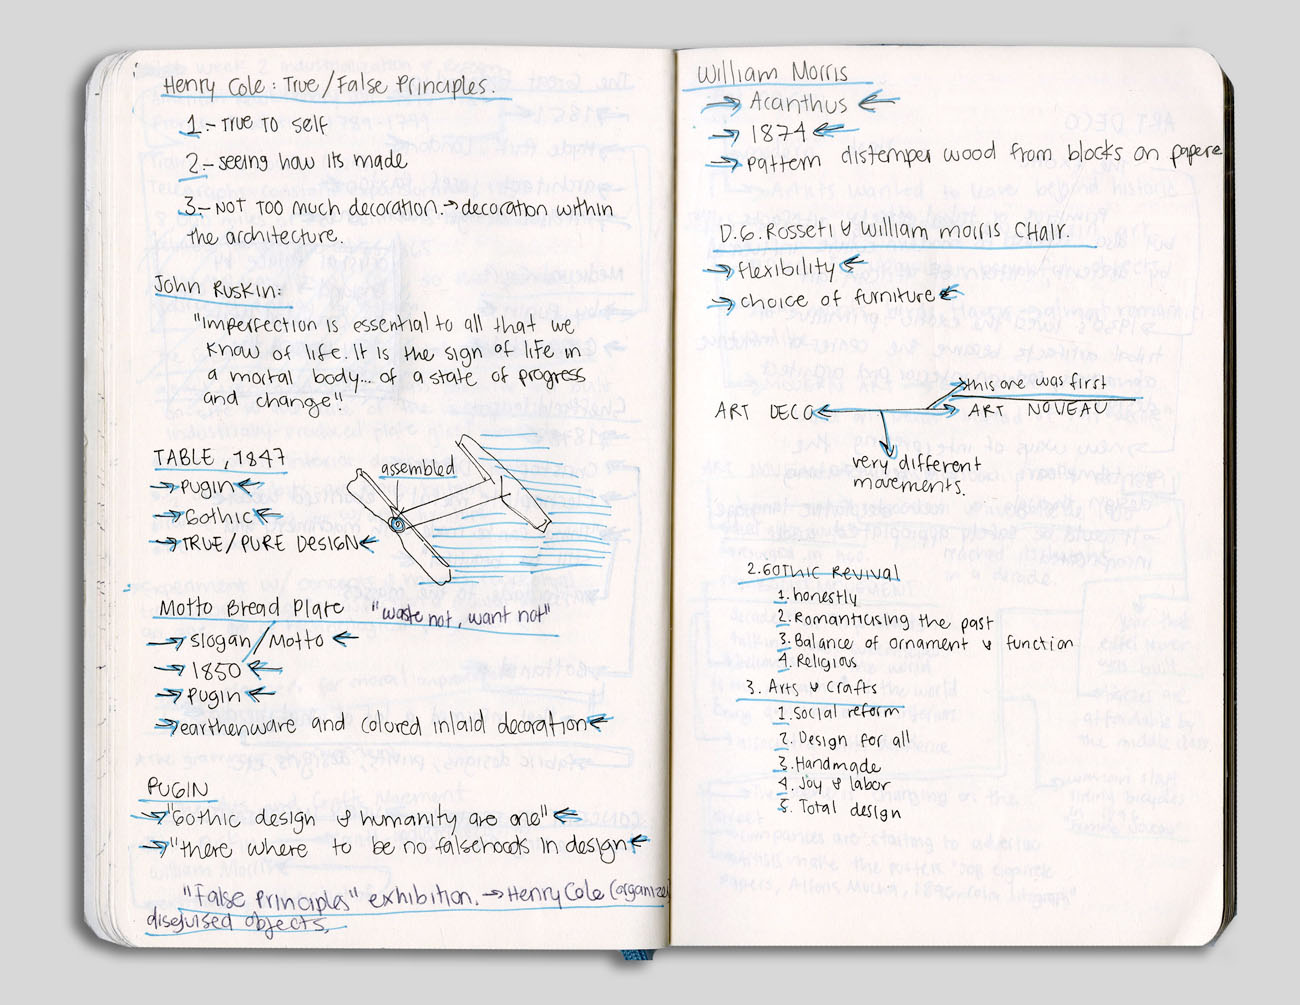 Henry Cole: True/False Principles.
1.- True to self
2.- seeing how its made
3.- Not too much decoration.→decoration within
the architecture.
John Ruskin:
"Imperfection is essential to all that we
know of life. It is the sign of life in
a mortal body... of a state of progress
and change".
TABLE, 1847
→ Pugin ←
→ Gothic ←
→ TRUE/PURE DESIGN ←
assembled
Motto Bread Plate "waste not, want not"
→ slogan/Motto ←
→ 1850 ←
→ Pugin ←
→ earthenware and colored inlaid decoration ←
PUGIN
→ "Gothic design & humanity are one" ←
→ "there where to be no falsehoods in design ←
"False Principles" exhibition. → Henry Cole (organized
diseguised objects.
William Morris
→ Acanthus ←
→ 1874 ←
→ pattern distemper wood from blocks on papere
D.G. Rosseti & William morris CHair.
→ flexibility ←
→ choice of furniture ←
→ this one was first
ART DECO ← → ART NOVEAU
very different
movements.
2. Gothic Revival
1. honestly
2. Romanticising the past
3. Balance of ornament & function
4. Religious
3. Arts & crafts
1. Social reform
2. Design for all
3. Handmade
4. Joy & labor
5. Total design